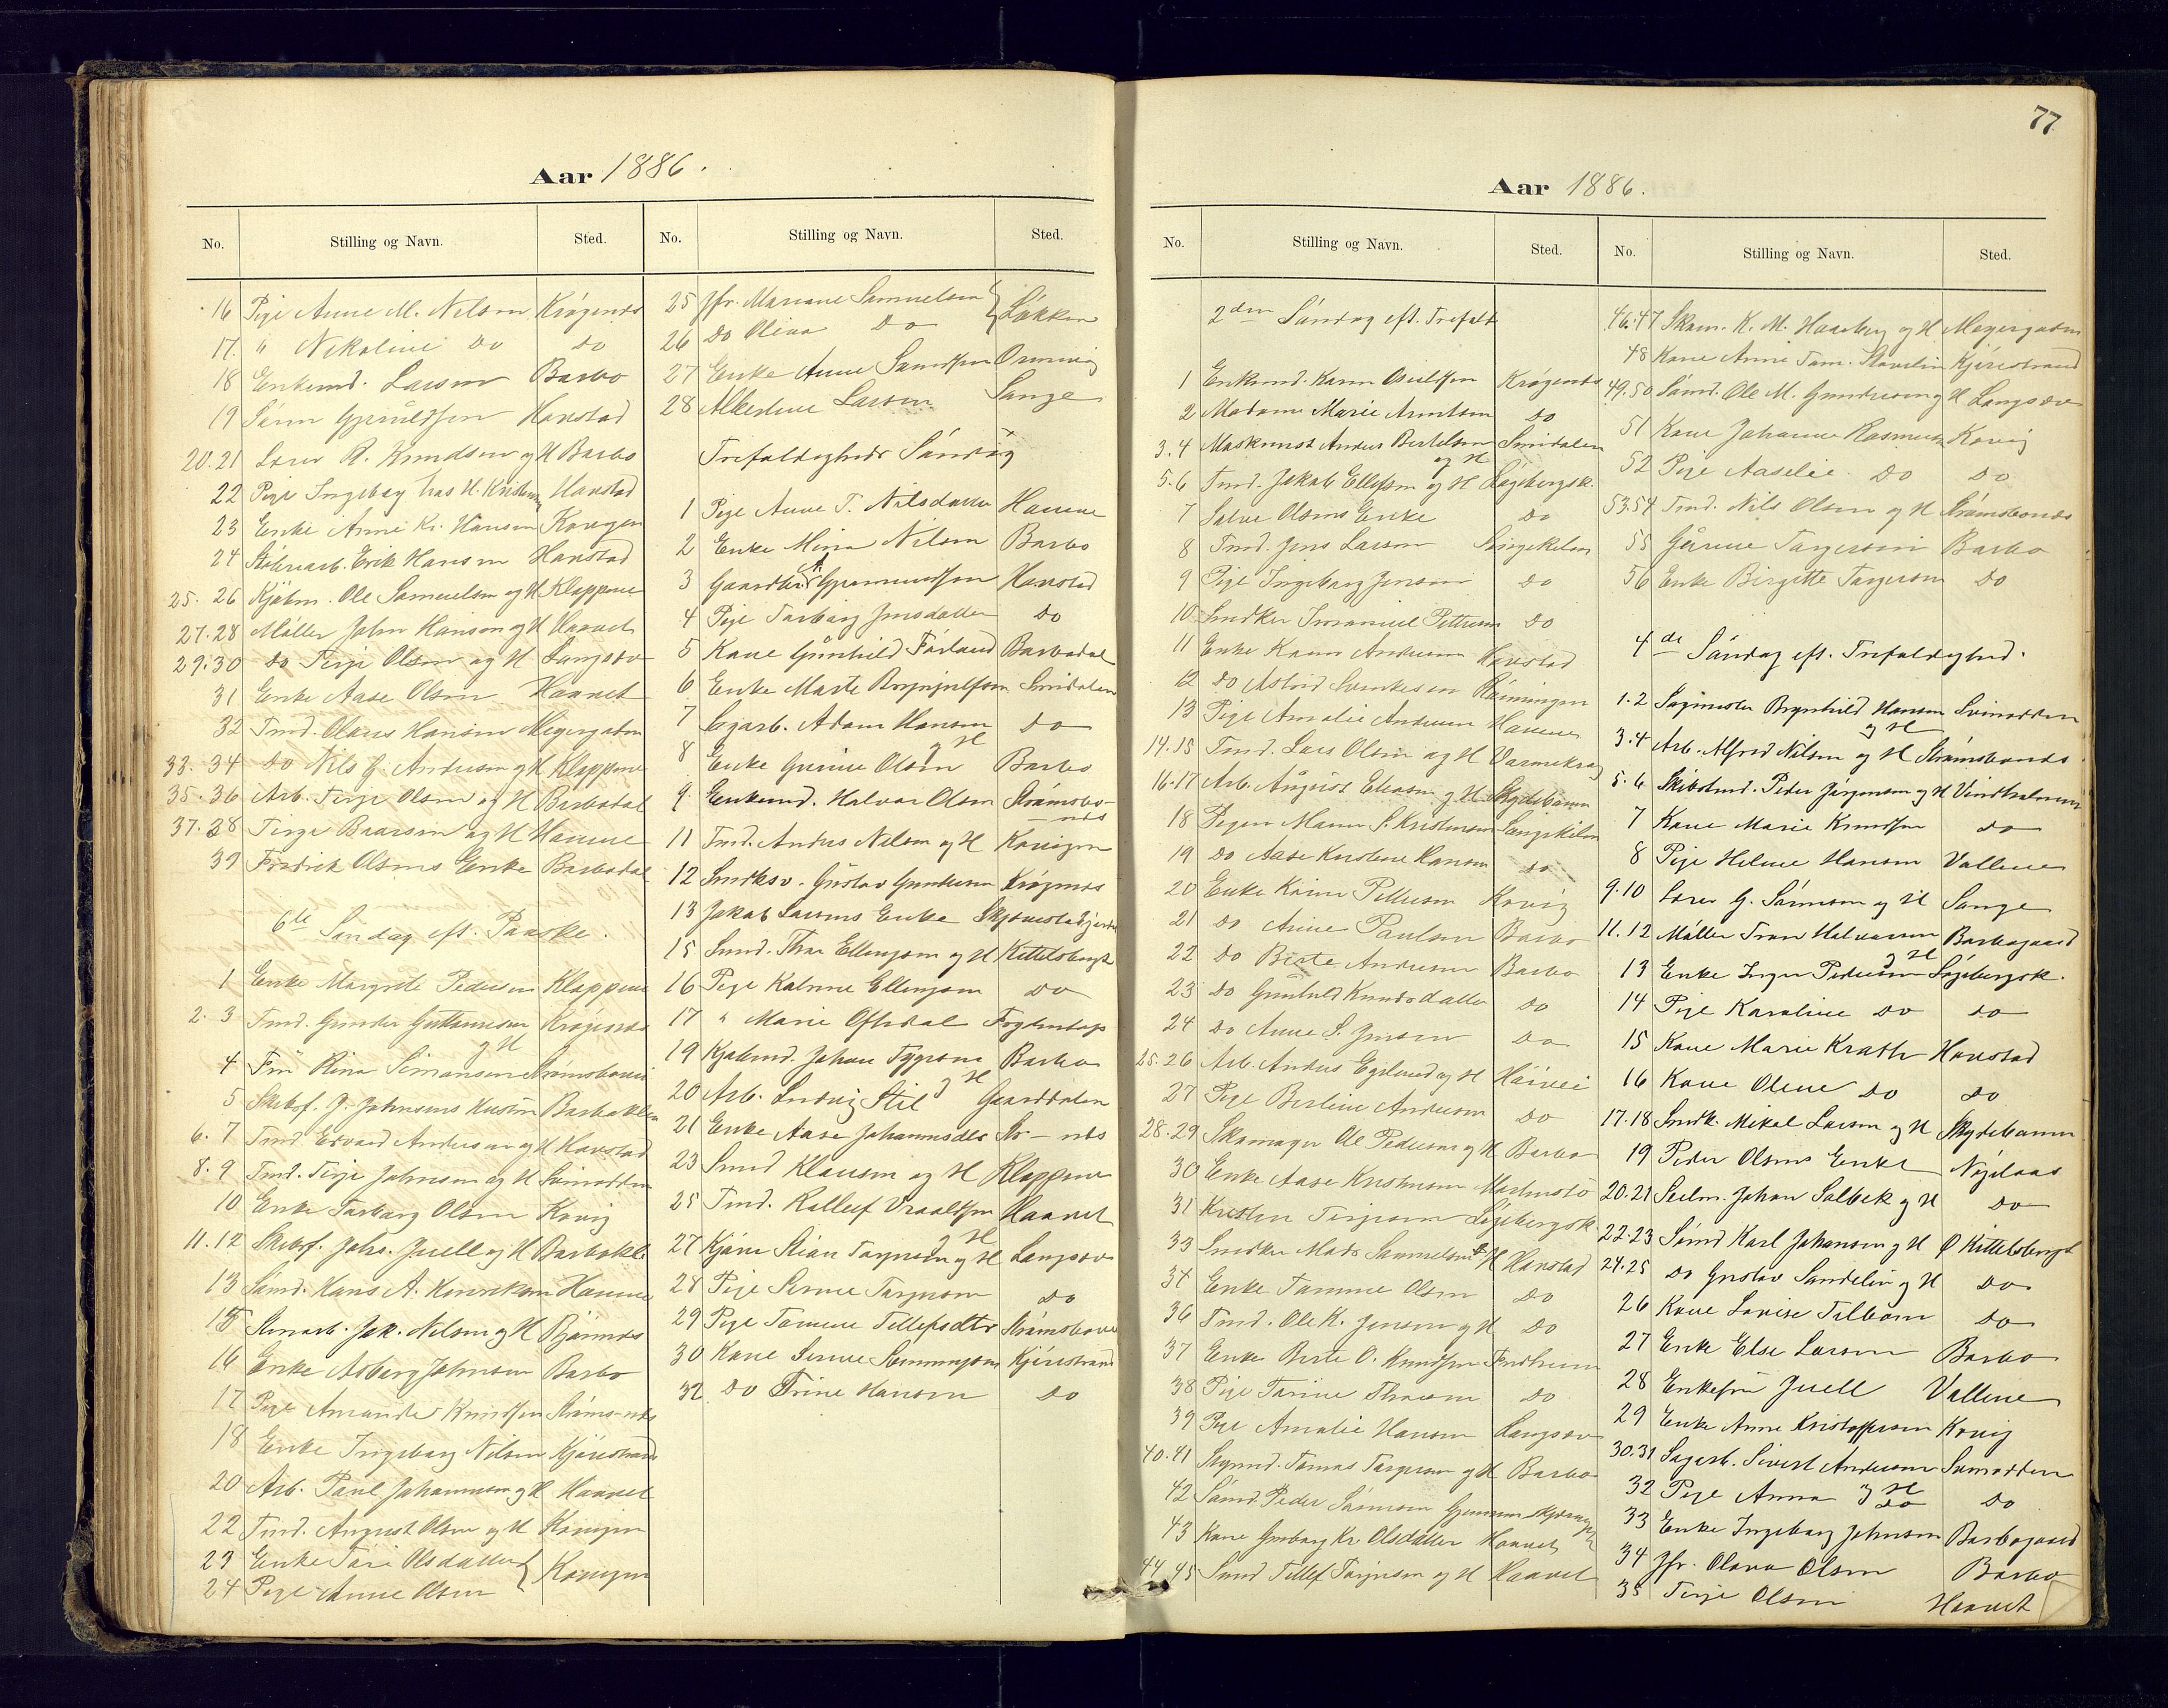 Aar 1886.
No. Stilling og Navn. Sted.
16 Pige Anne M. Nilsen Krøgenes
17. " Nikoline do do
18 Enkemd. Larsen Barbo
19 Søren Havstad
20.21 Lorer R. Knudsen og H Barbo
22 Pige Ingebog hos H. Havstad
23 Enke Anne Kr. Hansen
24 Erik Hansen Havstad
25. 26 Ole Samuelsen og H Kleppene
27.28 Møller John Hansen og H Haavet
29.30 do Terje Olsen og H Langsæv
31 Enke Aase Olsen Haavet
32 Tmd. Olaus Hansen
33. 34 do Nils G. Andersen og H Kleppene
35.36 Arb. Terje Olsen og H Barbodal
37.38 Terje Baarsen og H Hamne
39 Fredrik Olsens Enke Barbodal
6te Søndag eft. Paaske.
1 Enke Margrete Pedersen Kleppene
2. 3 Tmd. Gunder Guttormsen og H Krøgenes
4 Fru Rina Simonsen Strømsbones
5 Skibsf. J. Johnsens Barbo
6. 7 Tmd Edvard Andersen og H Havstad
8. 9 Tmd. Terje Johnsen og H Svinodden
10 Enke Torborg Olsen Kovig
11. 12 Skibsf. Johs. Juell og H
13 Sømd. Hans A. Henriksen Hamne
15 Jak. Nilsen og H
16 Enke Asborg Johnsen Barbo
17 Pige Amanda Knudsen Strøms-nes
18 Enke Ingeborg Nilsen Kjørestrand
20 Arb. Paul Johannesen og H Haavet
22 Tmd. August Olsen og H Kovigen
23 Enke Tare Olsdatter
24 Pige Anne Olsen } Kovigen
No. Stilling og Navn. Sted.
25 Jfr. Mariane Samuelsen
26 do Olina do } Løkken
27 Enke Anne Samdsen
28 Albertine Larsen Sange
Trefoldigheds Søndag
1 Pige Anne T. Nilsdatter Hamne
2 Enke Mina Nilsen Barbo
3 Havstad
4 Pige Torborg Jensdatter do
5 Kone Gunhild Førland Barbodal
6 Enke Marte Brynjulfsen Smidalen
7 Sagarb. Adam Hansen og H do
8 Enke Gurine Olsen Barbo
9. Enkemd. Halvor Olsen Strømsbo-nes
11 Tmd. Anders Nilsen og H Kovigen
12 Smedksv. Gustav Gundersen Krøgenes
13 Jakob Larsens Enke
15 Smd. Thor Ellingsen og H Kittelsbugt
16 Pige Katrine Ellingsen do
17 " Marie Oftedal
19 Johan og H Barbo
20 Arb. Ludvig Stil Gaarddalen
21 Enke Aase Johannesdtr Str-nes
23 Smed Klausen og H Kleppene
25 Tmd. Kallesf Vraalsen og H Haavet
27 Stian Torgersen og H Langsæv
28 Pige Serine Torgersen do
29 Pige Tomine Tellefsdtr Strømsbones
30 Kone Serine Kjørestrand
32. do Trine Hansen do
77
Aar 1886.
No. Stilling og Navn. Sted.
2den Søndag eft. Trefold
1 Enkemd. Karen Krøgenes
2 Madam Marie Arntsen do
3. 4 Maskinist Anders Bertelsen og H Smidalen
5. 6 Tmd. Jakob Ellefsen og H Løgebergsk.
7 Salve Olsens Enke do
8 Tmd. Jens Larsen Songekilen
9 Pige Ingeborg Jensen do
10 Imanuel Pettersen do
11 Enke Karen Andersen Havstad
12 do Astrid Rønningen
13 Pige Amalie Andersen Hamne
14.15 Tmd. Lars Olsen og H Varmekrog
16.17 Arb. August Eliasen og H Skydebanen
18 Pigen Maren S. Kristensen Songekilen
19 do Aase Kirstine Hansen do
20 Enke Karen Pettersen Kovig
21 do Anne Paulsen Barbo
22 do Berte Andersen Barbo
23 do Gunhild Knudsdatter do
24 do Anne S. Jensen do
25.26 Arb. Anders Egelund og H
27 Pige Berline Andersen do
28.29 Skomager Ole Pedersen og H Barbo
30 Enke Aase Kristensen
31 Kristen Terjesen Løgebergsk.
33 Mads Samuelsen & H Havstad
34 Enke Tomine Olsen do
36 Tmd. Ole K. Jensen og H do
37 Enke Berte O. Knudsen
38 Pige Tarine do
39 Pige Amalie Hansen Langsæv
40.41 Tomas Torgersen og H Barbo
42 Sømd. Peder Sørensen
43 Kone Kr. Olsdatter Haavet
44.45 Smd Tellef Torjusen og H Haavet
No. Stilling og Navn. Sted.
46.47 Skom. K. M. og H
48 Kone Anne Tom. Kjørestrand
49.50 Sømd. Ole M. Gundersen og H Langsæv
51 Kone Johanne Rasmussen Kovig
52 Pige Aaselie do do
53.54 Tmd. Nils Olsen og H Strømsbones
55 Gurine Torgersen Barbo
56 Enke Birgitte Torgersen do
4de Søndag eft. Trefoldighed.
1. 2 Sagmester Brynhild Hansen og H Svinodden
3.4 Arb. Alfred Nilsen og H Strømsbones
5. 6 Skibstmd. Peder Jørgensen og H Vindholmen
7 Kone Marie Knudsen do
8 Pige Helene Hansen Vallene
9.10 Lorer G. Sørensen og H Sange
11.12 Møller Tron Halvorsen og H Barbogaard
13 Enke Inger Pedersen Løgebergsk.
14 Pige Karoline do do
15 Kone Marie Krath Havstad
16 Kone Olene do do
17.18 Smedk. Mikal Larsen og H Skydebanen
19 Peder Olsens Enke
20.21 Seilm. Johan Salbek og H do
22.23 Sømd Karl Johansen og H Ø Kittelsbugt
24.25 do Gustav Sandelin og H do
26 Kone Lovise Tilbom do
27 Enke Else Larsen Barbo
28 Enkefru Juell Vallene
29 Enke Anne Kristoffersen Kovig
30.31 Sagarb. Sivert Andersen og H Svinodden
32 Pige Anna do do
33 Enke Ingeborg Johnsen Barbogaard
34 Jfr. Olava Olsen Barbo
35 Terje Olsen Haavet